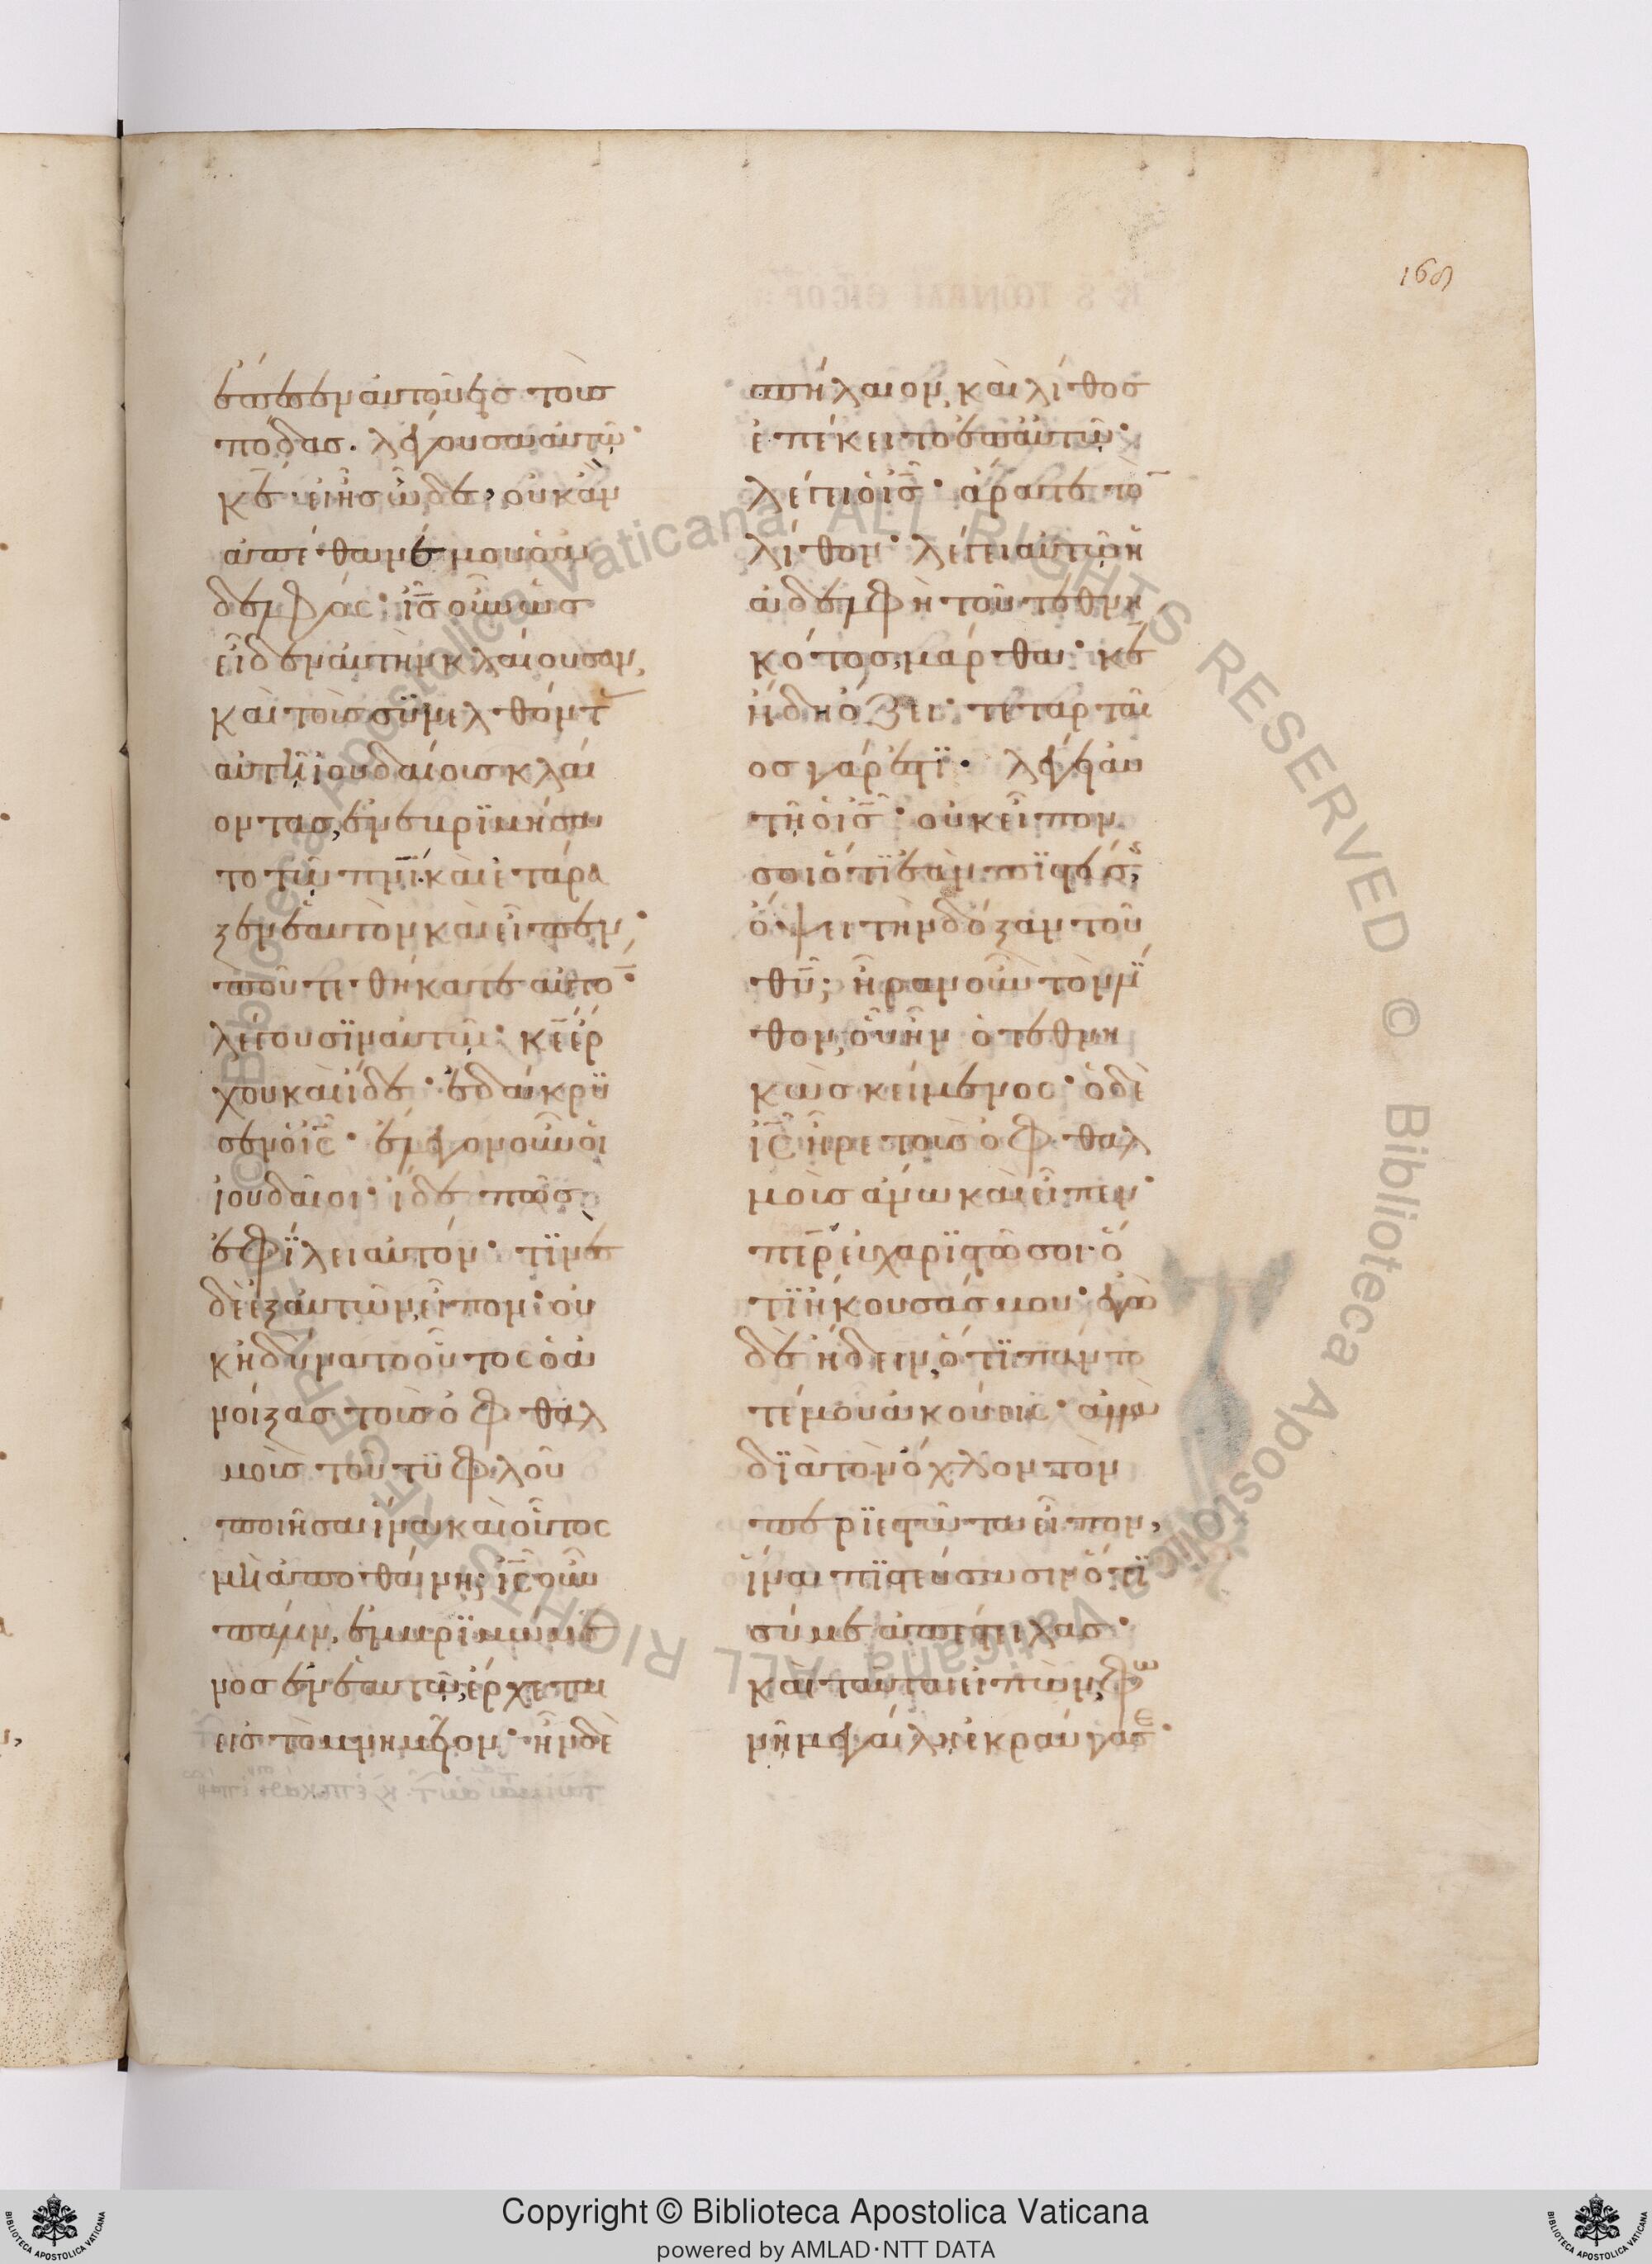 168
ἔπεσεν αὐτοῦ εἰς τοὺς
πόδας. λέγουσα αὐτῷ·
κε̄ εἰ ἦς ὧδε, οὐκ ἂν
ἀπέθανέ μου ὁ ἀ
δελφός· ἰς̄ οὖν ὡς
εἶδεν αὐτὴν κλαίουσαν,
καὶ τοὺς συνελθόντ
αὐτῇ ἰουδαίους κλαί
οντας, ἐνεβριμήσα
το τῷ πνῑ καὶ ἐτάρα
ξεν ἑαυτὸν καὶ εἶπεν·
ποῦ τεθήκατε αὐτο̄·
λέγουσϊν αὐτῷ· κε̄ ἔρ
χου καὶ ἴδε· ἐδάκρυ
σεν ὁ ἰς̄· ἔλεγον οὖν οἱ
ἰουδαῖοι· ἴδε πῶς
ἐφΐλει αὐτόν· τϊνὲ
δὲ ἐξ αὐτῶν, εἶπον· οὐ
κ ἠδύνατο οὗτος ὁ ἀ
νοίξας τοὺς ὀφθαλ
μοὺς τοῦ τυφλοῦ
ποιῆσαι ἵνα καὶ οὗτος
μὴ ἀποθάνῃ; ἰς̄ οὖν
πάλιν, ἐμβριμώμε
νος ἐν ἑαυτῷ, ἔρχεται
εἰς τὸ μνημεῖον· ἦν δὲ
σπήλαιον, καὶ λίθος
ἐπέκειτο ἐπ' αὐτῷ·
λέγει ὁ ἰς̄· ἄρατε το̄
λίθον· λέγει αὐτῷ ἡ
ἀδελφὴ τοῦ τεθνη
κότος, μάρθα· κε̄
ἤδη ὄζει· τεταρταῖ
ος γάρ ἐστϊ· λέγει αὐ
τῇ ὁ ἰς̄· οὐκ εἶπόν
σοι ὅτϊ ἐὰν πϊστεύσῃς,
ὄψει τὴν δόξαν τοῦ
θῡ; ἦραν οὖν τὸν λί
θον, οὗ ἦν ὁ τεθνη
κὼς κείμενος· ὁ δὲ
ἰς̄ ἦρε τοὺς ὀφθαλ
μοὺς ἄνω καὶ εἶπεν·
περ̄ εὐχαρϊστῶ σοι ὅ
τϊ ἤκουσάς μου· ἐγὼ
δὲ ᾔδειν, ὅτϊ πάντο
τέ μου ἀκούεις· ἀλλὰ
δϊὰ τὸν ὄχλον τὸν
περϊεστῶτα εἶπον,
ἵνα πϊστεύσωσιν ὅτϊ
σύ με ἀπέστειλας·
καὶ ταῦτα εἰπὼν, φω
νῇ μεγάλῃ ἐκραύγασε·
Copyright © Biblioteca Apostolica Vaticana
powered by AMLAD·NTT DATA